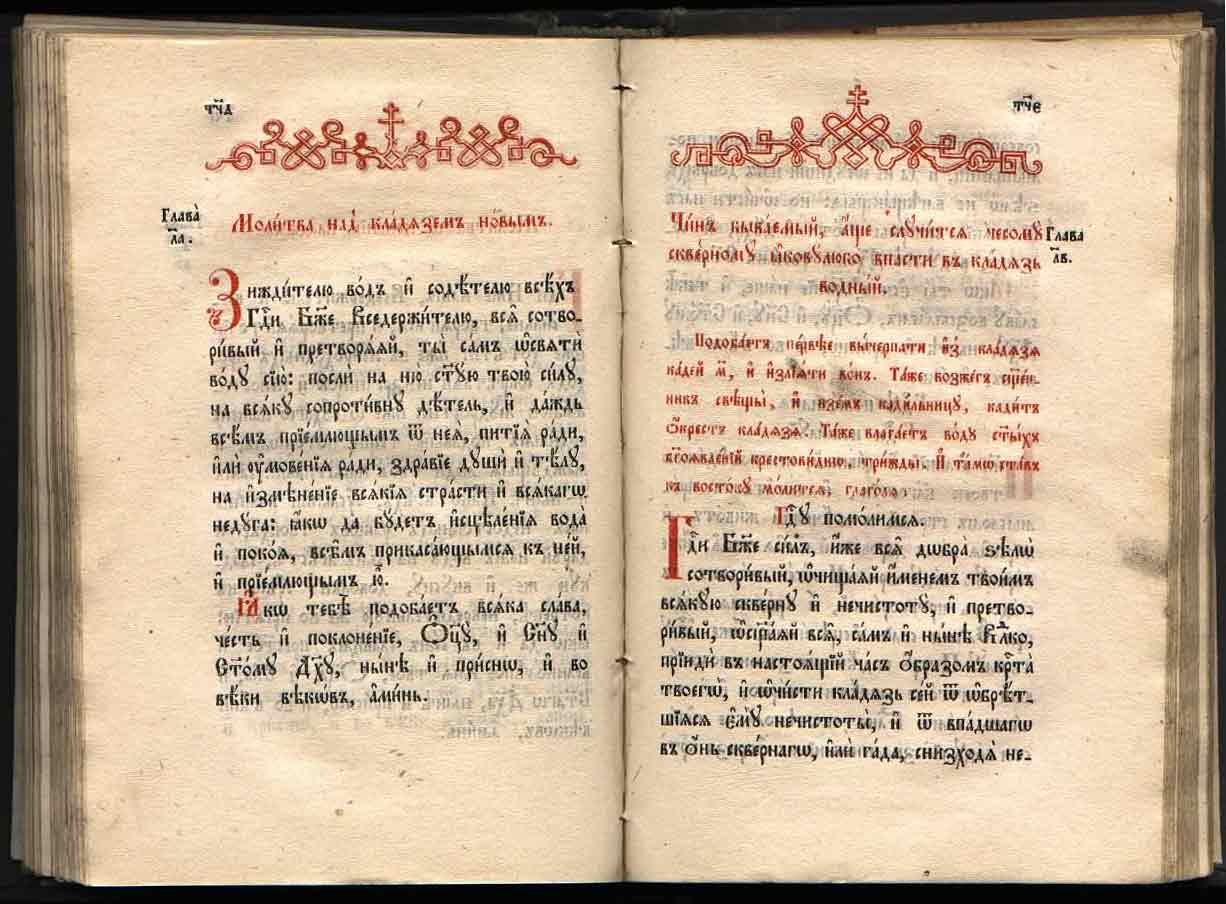 тч҃д
Глава̀ л҃а.
Моли́тва над̾ кла́дяземъ но́вымъ.
Зижди́телю во́дъ и҆ содѣ́телю всѣ́хъ
Гд҇и Бж҃е Вседержи́телю, всѧ̑ сотво-
ри́вый и҆ претворѧ́ѧй, ты̀ са́мъ ѡ҆свѧтѝ
во́ду сїю̀: послѝ на ню̀ ст҃у́ю твою̀ си́лу,
на всѧ́ку сопроти́вну дѣ́тель, и҆ да́ждь
всѣ̑мъ прїе́млющымъ ѿ неѧ̀, питїѧ̀ ра́ди,
и҆лѝ ᲂу҆мове́нїѧ ра́ди, здра́вїе дꙋшѝ и҆ тѣ́лꙋ,
на и҆змѣне́нїе всѧ́кїѧ стра́сти и҆ всѧ́кагѡ
недꙋ́га: ꙗ҆́кѡ да бꙋ́детъ и҆сцѣле́нїѧ вода̀
и҆ поко́ѧ, всѣ̑мъ прикаса́ющымсѧ къ не́й,
и҆ прїе́млющымъ ю҆̀.
Ꙗ҆́кѡ тебѣ̀ подоба́етъ всѧ́ка сла́ва,
че́сть и҆ поклоне́нїе, Ѻ҆ц҃ꙋ̀, и҆ Сн҃ꙋ и҆
Ст҃о́мꙋ Дх҃ꙋ, ны́нѣ и҆ при́снѡ, и҆ во
вѣ́ки вѣкѡ́въ, а҆ми́нь.
тч҃е
Глава̀ л҃в.
Чи́нъ быва́емый, а҆́ще слꙋчи́тсѧ чесомꙋ̀
скве́рномꙋ ꙗ҆ковꙋлю́бо впа́сти въ кла́дѧзь
во́дный.
Подоба́етъ пе́рвѣе вы́черпати и҆з̾ кла́дѧзѧ
ка́дей м҃, и҆ и҆злїѧ́ти во́нъ. Та́же возже́гъ сщ҃е́н-
никъ свѣщы̀, и҆ взе́мъ кади́льницꙋ, кади́тъ
ѻ҆́крестъ кла́дѧзѧ. Та́же влага́етъ во́дꙋ ст҃ы́хъ
бг҃оѧвле́нїй крестови́днѡ, три́жды. И҆ та́мѡ ста́въ
къ восто́кꙋ мо́литсѧ, глаго́лѧ:
Гд҇ꙋ помо́лимсѧ.
Гд҇и Бж҃е си́лъ, и҆́же всѧ̑ дѡбра̀ ѕѣлѡ̀
сотвори́вый, ѡ҆чища́ѧй и҆́менемъ твои́мъ
всѧ́кꙋю скве́рнꙋ и҆ нечистотꙋ̀, и҆ претво-
ри́вый, ѡ҆сщ҃а́ѧй всѧ̑, са́мъ и҆ ны́нѣ Вл҃ко,
прїидѝ въ настоѧ́щїй ча́съ ѻ҆́бразомъ кр҇та̀
твоегѡ̀, и҆ ѡ҆чи́сти кла́дѧзь се́й ѿ ѡ҆брѣ́т-
шїѧсѧ є҆мꙋ̀ нечистоты̀, и҆ ѿ впа́дшагѡ
въ ѻ҆́нь скве́рнагѡ, и҆лѝ га́да, снизходѧ̀ не-